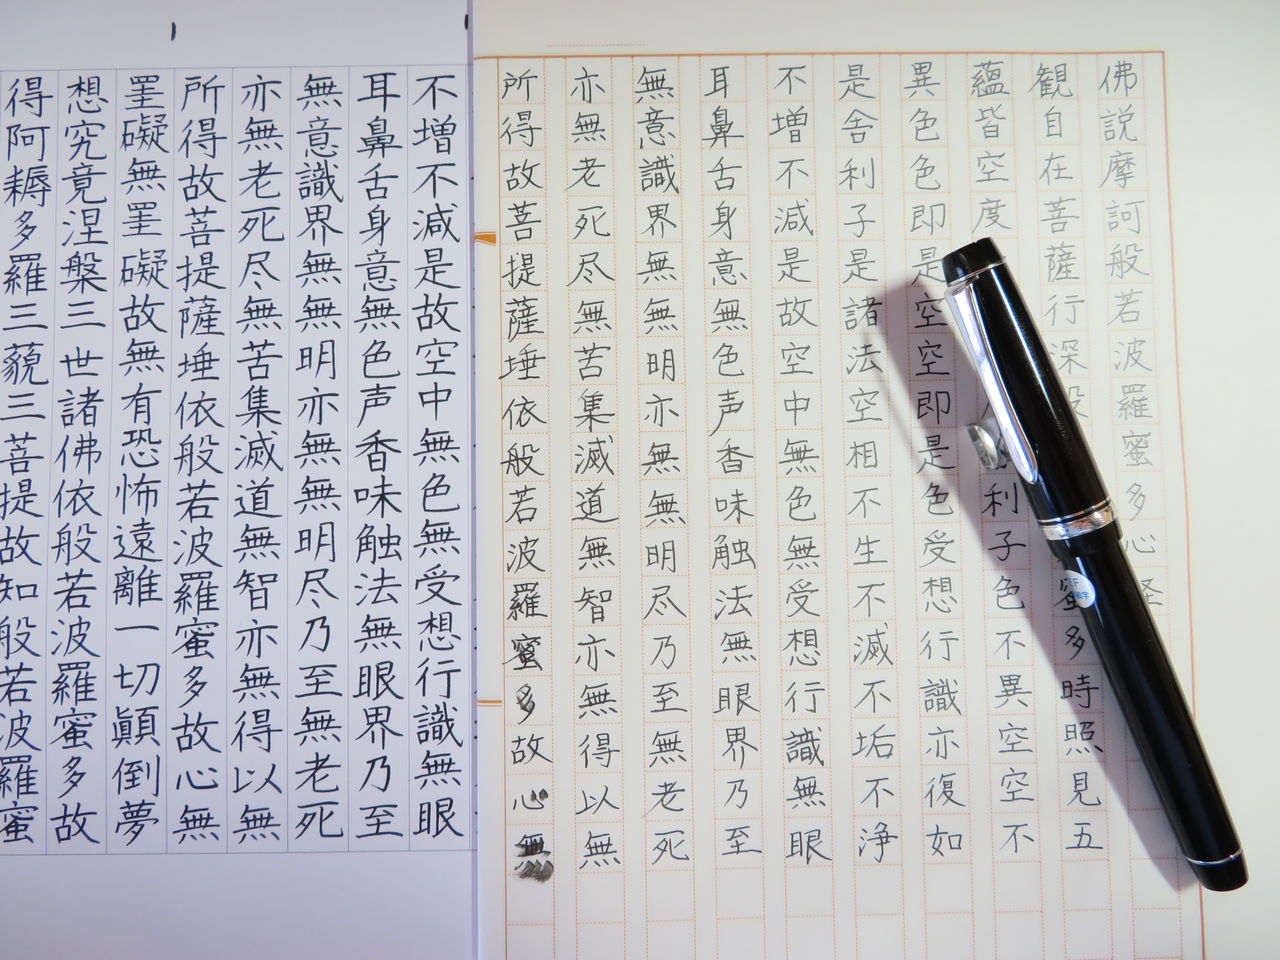 佛説摩訶般若波羅蜜多心経
観自在菩薩行深般蜜多時照見五
蘊皆空度利子色不異空空不
異色色即是空空即是色受想行識亦復如
是舎利子是諸法空相不生不滅不垢不浄
不増不減是故空中無色無受想行識無眼
耳鼻舌身意無色声香味触法無眼界乃至
無意識界無無明亦無無明尽乃至無老死
亦無老死尽無苦集滅道無智亦無得以無
所得故菩提薩埵依般若波羅蜜多故心無
不増不減是故空中無色無受想行識無眼
耳鼻舌身意無色声香味触法無眼界乃至
無意識界無無明亦無無明尽乃至無老死
亦無老死尽無苦集滅道無智亦無得以無
所得故菩提薩埵依般若波羅蜜多故心無
罣礙無罣礙故無有恐怖遠離一切顚倒夢
想究竟涅槃三世諸佛依般若波羅蜜多故
得阿耨多羅三藐三菩提故知般若波羅蜜